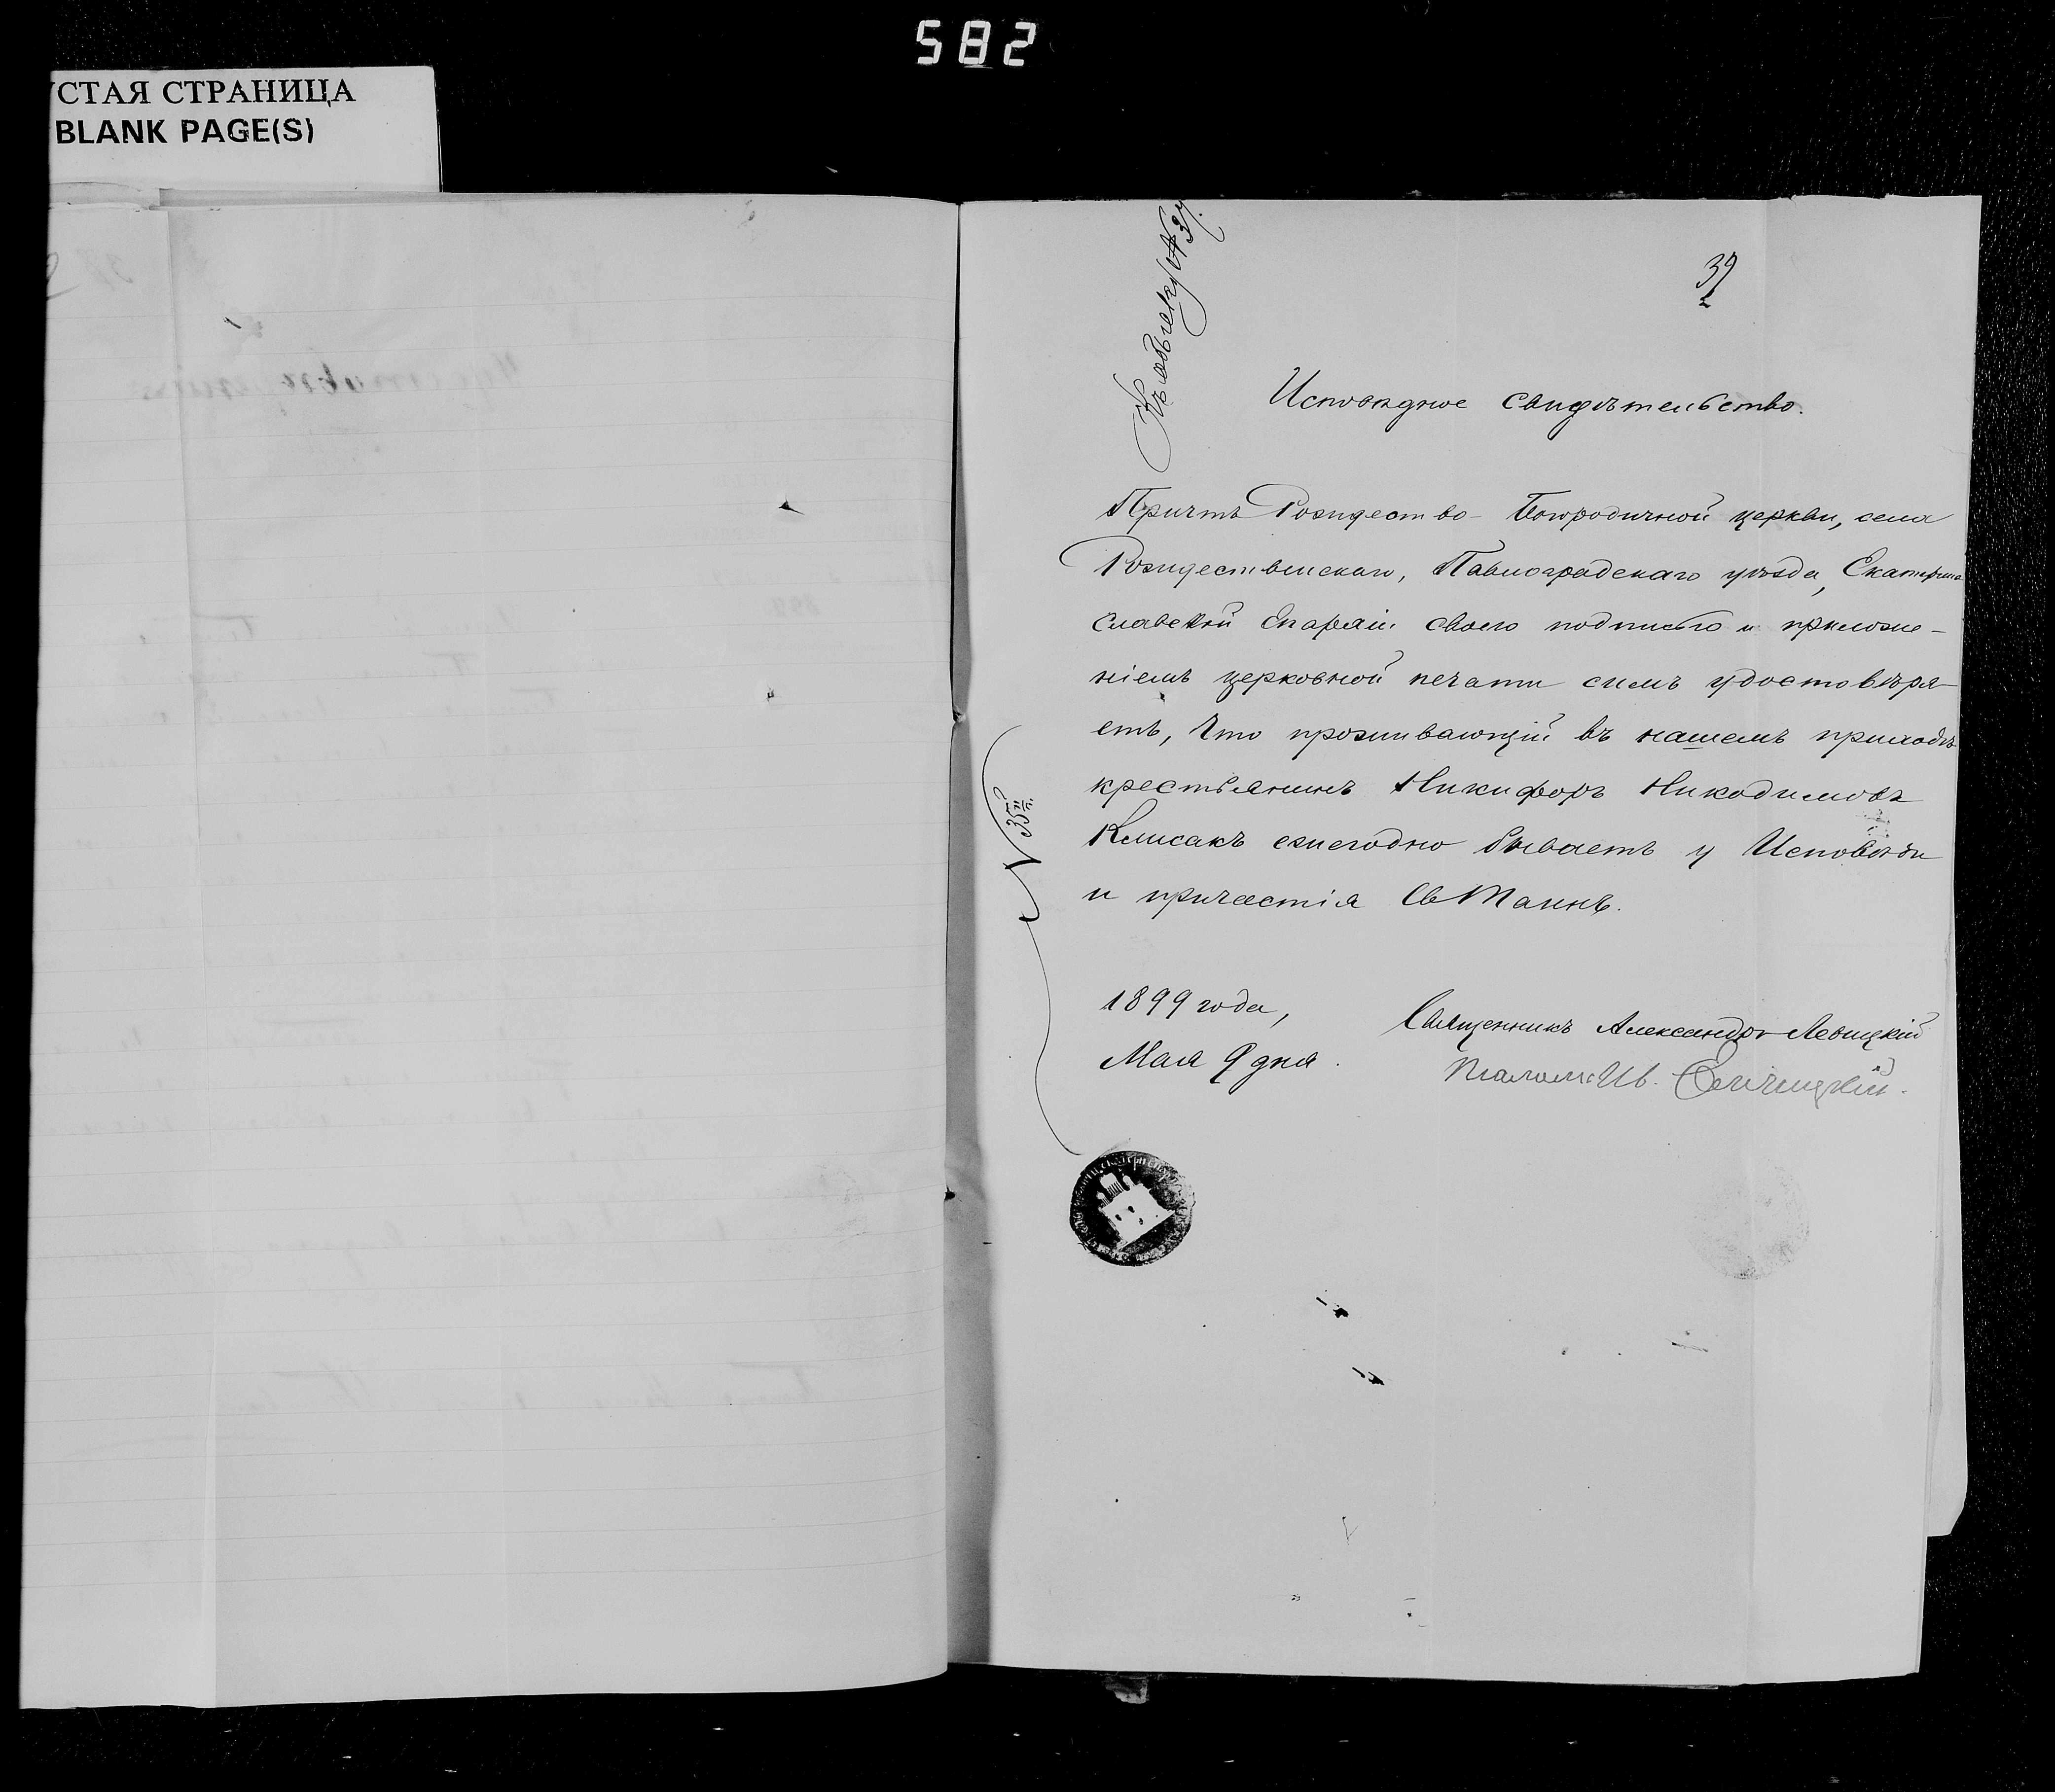 582
УСТАЯ СТРАНИЦА
BLANK PAGE(S)
Къ обыску № 37.
39
Исповѣдное свидѣтельство.
Причтъ Рождество-Богородичной церкви, села
Рождественскаго, Павлоградскаго уѣзда, Екатерино
славской Епархіи своею подписью и приложе-
ніемъ церковной печати симъ удостовѣря-
етъ, что проживающій въ нашемъ приходѣ
крестьянинъ Никифоръ Никодимовъ
Клисакъ ежегодно бываетъ у Исповѣди
и причастія Св Таинъ.
№ 35
1899 года,
Мая 9 дня.
Священникъ Александръ Левицкій
Псаломщ Ив.